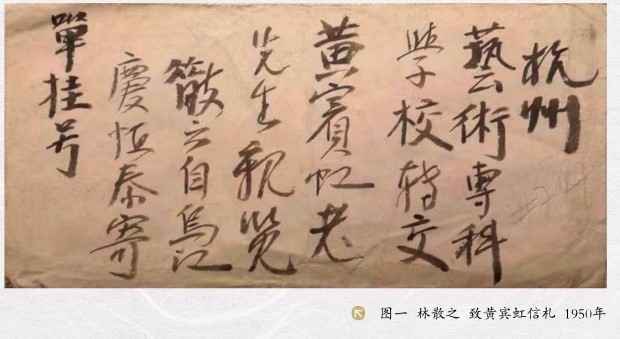 杭州
藝術專科
學校轉交
黃賓虹老
先生親覽
散之自烏江
慶恒泰寄
單挂号
图一 林散之 致黄宾虹信札 1950年